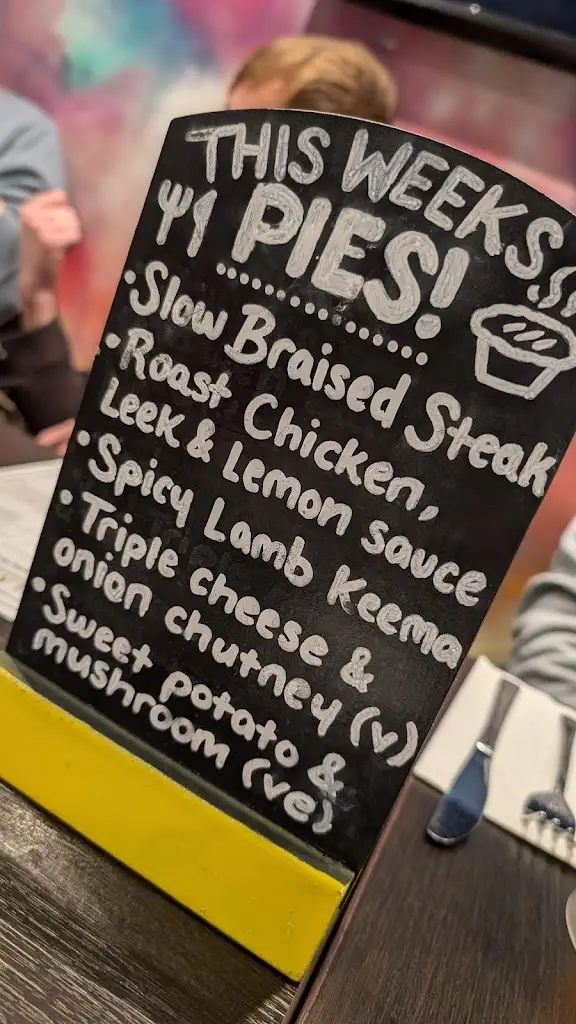 THIS WEEKS
PIES!
• Slow Braised Steak
• Roast Chicken,
Leek & Lemon sauce
• Spicy Lamb Keema
• Triple cheese &
onion chutney (v)
• Sweet potato &
mushroom (ve)